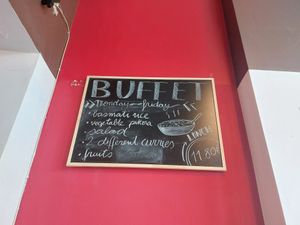 BUFFET
Monday - friday
• basmati rice
• vegetable pakora
• salad
• 2 different curries
• fruits
LUNCH
11.80€